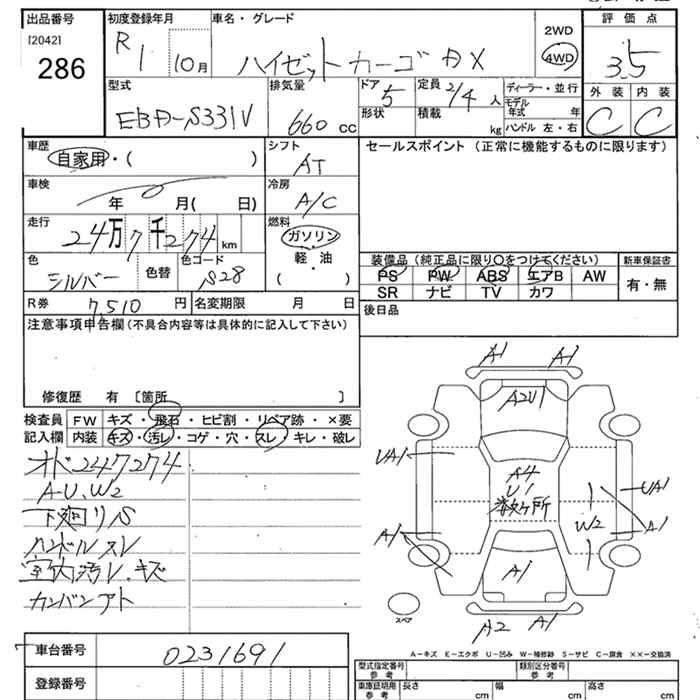 出品番号
[2042]
286
初度登録年月
R 1 10月
車名・グレード
ハイゼットカーゴ DX
2WD
4WD
評価点
3.5
外装 内装
C C
型式
EBD-S331V
排気量
660 cc
ドア
5
形状
定員
2/4 人
積載
kg
ディーラー・並行
モデル年式 年
ハンドル 左・右
車歴
自家用・( )
シフト
AT
セールスポイント (正常に機能するものに限ります)
車検
年 月( 日)
冷房
A/C
走行
24万7千274km
燃料
ガソリン
軽・油
( )
色
シルバー
色替
色コード
S28
装備品(純正品に限り○をつけてください)
新車保証書
PS PW ABS エアB AW
SR ナビ TV カワ
有・無
R券 7,510 円
名変期限 月 日
後日品
注意事項申告欄(不具合内容等は具体的に記入して下さい)
修復歴 有 [箇所 ]
検査員記入欄
FW キズ・飛石・ヒビ割・リペア跡・×要
内装 キズ・汚レ・コゲ・穴・スレ・キレ・破レ
オド247274
A-U、W2
下廻りS
ハンドルスレ
室内汚レ、キズ
カンバンアト
A1 A1
A2U1
UA1
A4
U1
多数ケ所
UA1
W2
A1
A1
A1
A2 A1
スペア
車台番号
0231691
登録番号
A-キズ E-エクボ U-凹み W-補修跡 S-サビ C-腐食 ××-交換済
型式指定番号 参考
類別区分番号 参考
車庫証明用 参考
長さ cm
幅 cm
高さ cm